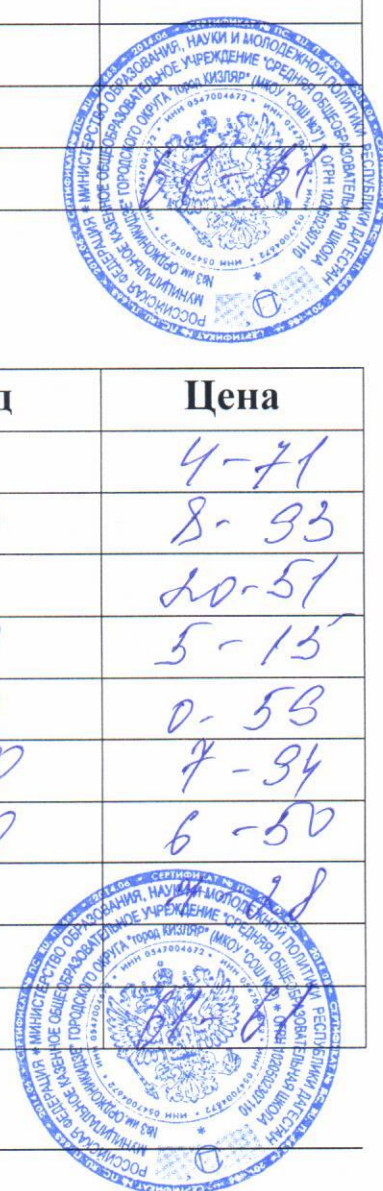 61-61
РОССИЙСКАЯ ФЕДЕРАЦИЯ * МИНИСТЕРСТВО ОБРАЗОВАНИЯ, НАУКИ И МОЛОДЕЖНОЙ ПОЛИТИКИ РЕСПУБЛИКИ ДАГЕСТАН
МУНИЦИПАЛЬНОЕ КАЗЕННОЕ ОБЩЕОБРАЗОВАТЕЛЬНОЕ УЧРЕЖДЕНИЕ "СРЕДНЯЯ ОБЩЕОБРАЗОВАТЕЛЬНАЯ ШКОЛА
№3 им. ОРДЖОНИКИДЗЕ" ГОРОДСКОГО ОКРУГА "город КИЗЛЯР" (МКОУ "СОШ №3")
ИНН 0547004672
д Цена
4-71
8-93
20-51
5-15
0-59
0 7-94
0 6-50
28
61-61
РОССИЙСКАЯ ФЕДЕРАЦИЯ * МИНИСТЕРСТВО ОБРАЗОВАНИЯ, НАУКИ И МОЛОДЕЖНОЙ ПОЛИТИКИ РЕСПУБЛИКИ ДАГЕСТАН
МУНИЦИПАЛЬНОЕ КАЗЕННОЕ ОБЩЕОБРАЗОВАТЕЛЬНОЕ УЧРЕЖДЕНИЕ "СРЕДНЯЯ ОБЩЕОБРАЗОВАТЕЛЬНАЯ ШКОЛА
№3 им. ОРДЖОНИКИДЗЕ" ГОРОДСКОГО ОКРУГА "город КИЗЛЯР" (МКОУ "СОШ №3")
ИНН 0547004672